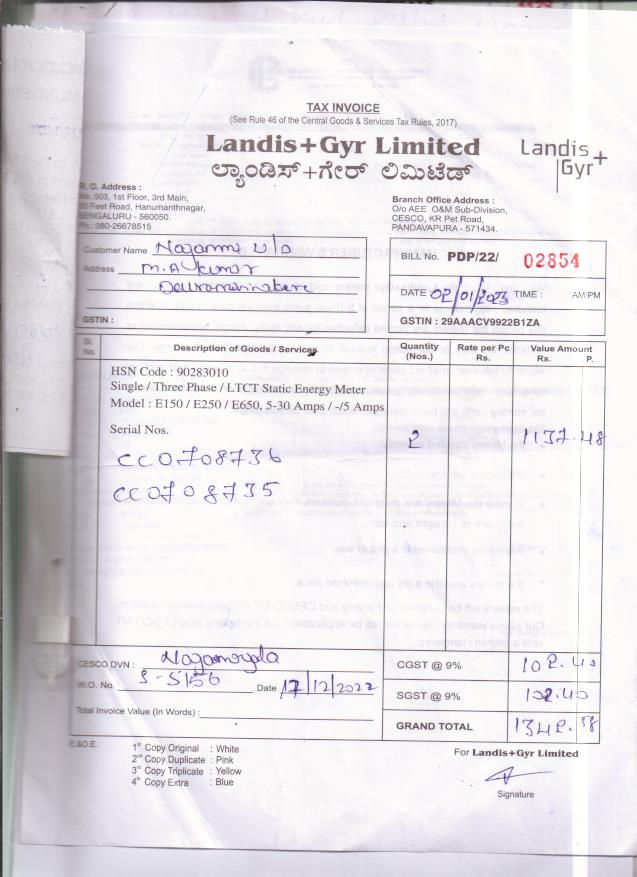 TAX INVOICE
(See Rule 46 of the Central Goods & Services Tax Rules, 2017)
Landis+Gyr Limited
ಲ್ಯಾಂಡಿಸ್+ಗೇರ್ ಲಿಮಿಟೆಡ್
Landis+
Gyr
R. O. Address :
No. 503, 1st Floor, 3rd Main,
Feet Road, Hanumanthnagar,
BENGALURU - 560050.
Ph.: 080-26678515
Branch Office Address :
O/o AEE O&M Sub-Division,
CESCO, KR Pet Road,
PANDAVAPURA - 571434.
Customer Name Nagamma
Address M.A Kumar
GSTIN :
BILL No. PDP/22/ 02854
DATE 02/01/2023 TIME : AM/PM
GSTIN : 29AAACV9922B1ZA
Sl. No. Description of Goods / Services Quantity (Nos.) Rate per Pc Rs. Value Amount Rs. P.
HSN Code : 90283010
Single / Three Phase / LTCT Static Energy Meter
Model : E150 / E250 / E650, 5-30 Amps / -/5 Amps
Serial Nos. 2 1137.48
CC0708736
CC0708735
CESCO DVN : Nagamangala
W.O. No. S-5156 Date 17/12/2022
Total Invoice Value (In Words) :
CGST @ 9% 102.40
SGST @ 9% 102.40
GRAND TOTAL 1342.
E.&O.E.
1st Copy Original : White
2nd Copy Duplicate : Pink
3rd Copy Triplicate : Yellow
4th Copy Extra : Blue
For Landis+Gyr Limited
Signature